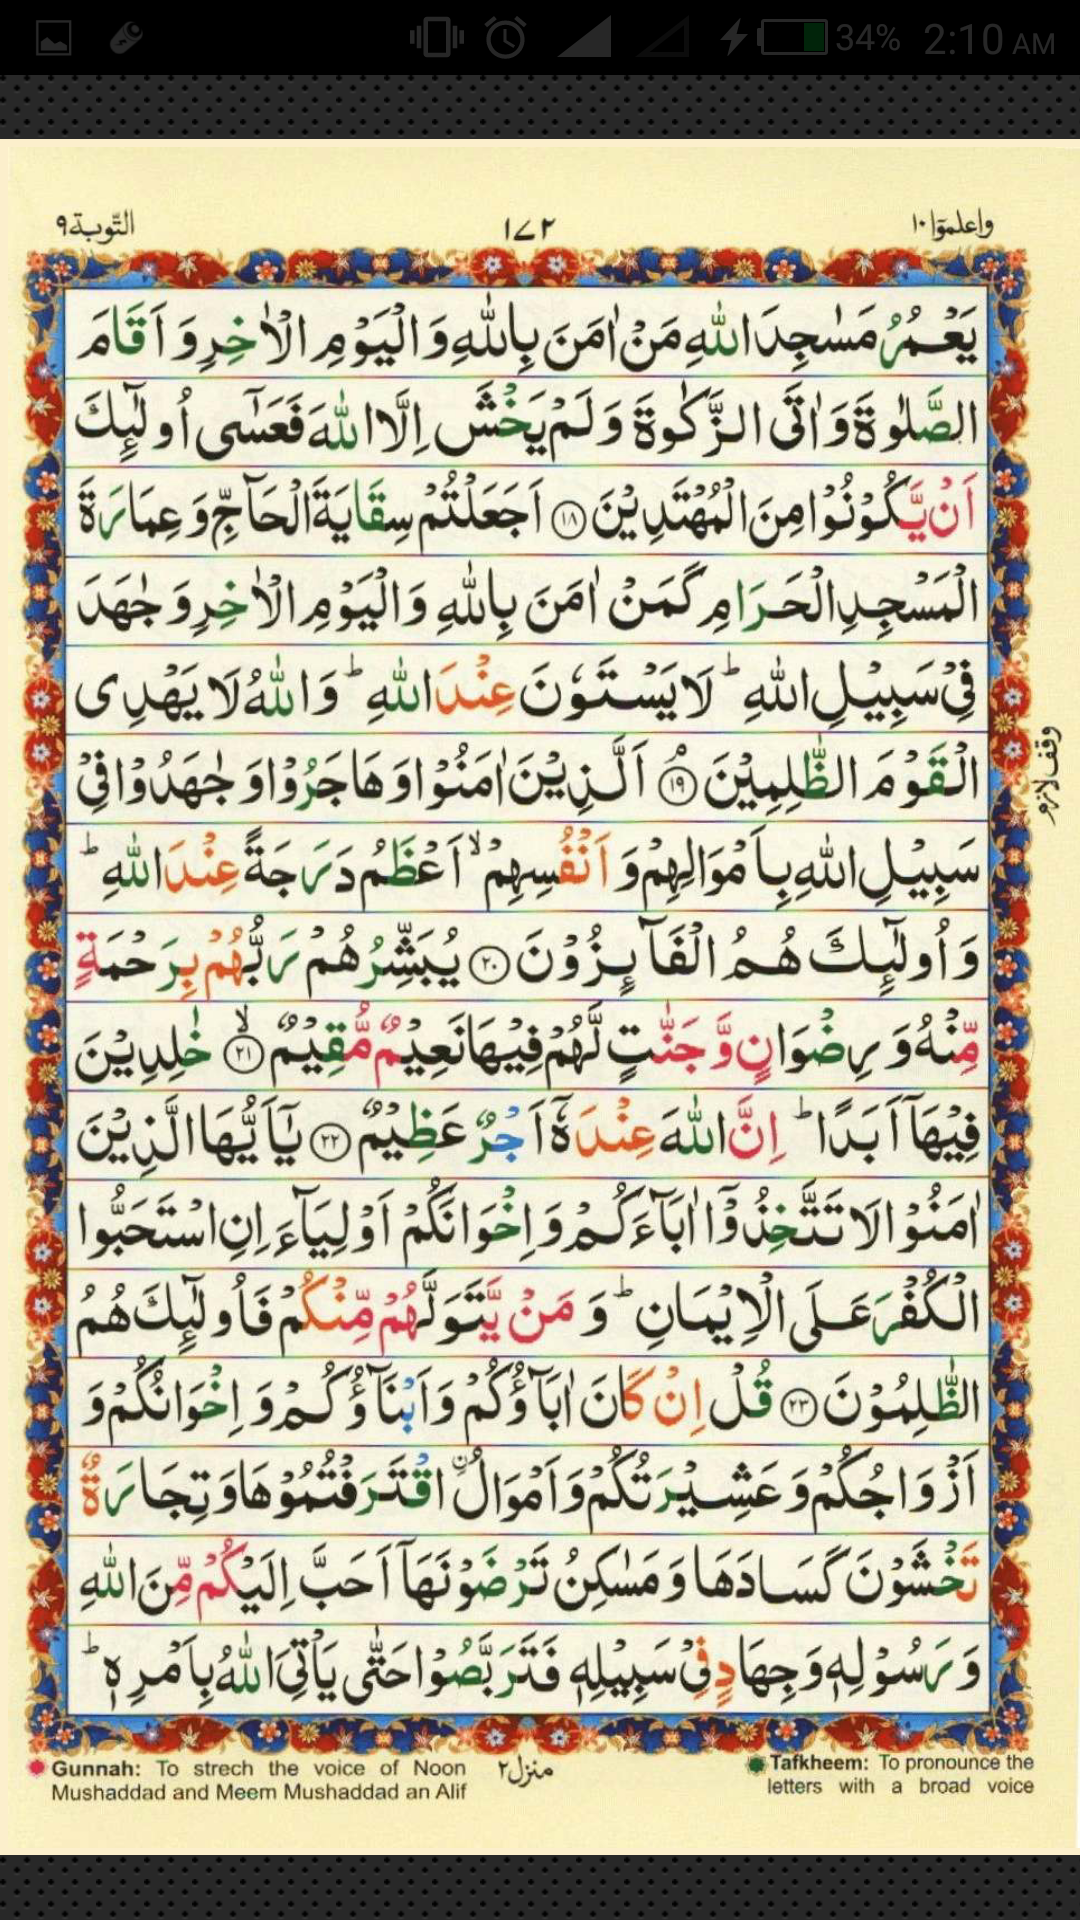 34% 2:10 AM
التوبة ٩ ١٧٢ واعلموا ١٠
يَعْمُرُ مَسٰجِدَ اللّٰهِ مَنْ اٰمَنَ بِاللّٰهِ وَ الْيَوْمِ الْاٰخِرِ وَ اَقَامَ
الصَّلٰوةَ وَ اٰتَى الزَّكٰوةَ وَ لَمْ يَخْشَ اِلَّا اللّٰهَ فَعَسٰۤى اُولٰٓئِكَ
اَنْ يَّكُوْنُوْا مِنَ الْمُهْتَدِيْنَ ﴿١٨﴾ اَجَعَلْتُمْ سِقَايَةَ الْحَآجِّ وَ عِمَارَةَ
الْمَسْجِدِ الْحَرَامِ كَمَنْ اٰمَنَ بِاللّٰهِ وَ الْيَوْمِ الْاٰخِرِ وَ جٰهَدَ
فِيْ سَبِيْلِ اللّٰهِ ؕ لَا يَسْتَوٗنَ عِنْدَ اللّٰهِ ؕ وَ اللّٰهُ لَا يَهْدِى
الْقَوْمَ الظّٰلِمِيْنَ ﴿١٩﴾ۘ اَلَّذِيْنَ اٰمَنُوْا وَ هَاجَرُوْا وَ جٰهَدُوْا فِيْ
وقف لازم
سَبِيْلِ اللّٰهِ بِاَمْوَالِهِمْ وَ اَنْفُسِهِمْ ۙ اَعْظَمُ دَرَجَةً عِنْدَ اللّٰهِ ؕ
وَ اُولٰٓئِكَ هُمُ الْفَآئِزُوْنَ ﴿٢٠﴾ يُبَشِّرُهُمْ رَبُّهُمْ بِرَحْمَةٍ
مِّنْهُ وَ رِضْوَانٍ وَّ جَنّٰتٍ لَّهُمْ فِيْهَا نَعِيْمٌ مُّقِيْمٌ ﴿٢١﴾ۙ خٰلِدِيْنَ
فِيْهَاۤ اَبَدًا ؕ اِنَّ اللّٰهَ عِنْدَهٗۤ اَجْرٌ عَظِيْمٌ ﴿٢٢﴾ يٰۤاَيُّهَا الَّذِيْنَ
اٰمَنُوْا لَا تَتَّخِذُوْۤا اٰبَآءَكُمْ وَ اِخْوَانَكُمْ اَوْلِيَآءَ اِنِ اسْتَحَبُّوا
الْكُفْرَ عَلَى الْاِيْمَانِ ؕ وَ مَنْ يَّتَوَلَّهُمْ مِّنْكُمْ فَاُولٰٓئِكَ هُمُ
الظّٰلِمُوْنَ ﴿٢٣﴾ قُلْ اِنْ كَانَ اٰبَآؤُكُمْ وَ اَبْنَآؤُكُمْ وَ اِخْوَانُكُمْ وَ
اَزْوَاجُكُمْ وَ عَشِيْرَتُكُمْ وَ اَمْوَالُ اۨقْتَرَفْتُمُوْهَا وَ تِجَارَةٌ
تَخْشَوْنَ كَسَادَهَا وَ مَسٰكِنُ تَرْضَوْنَهَاۤ اَحَبَّ اِلَيْكُمْ مِّنَ اللّٰهِ
وَ رَسُوْلِهٖ وَ جِهَادٍ فِيْ سَبِيْلِهٖ فَتَرَبَّصُوْا حَتّٰى يَاْتِيَ اللّٰهُ بِاَمْرِهٖ ؕ
منزل ٢
Gunnah: To strech the voice of Noon
Mushaddad and Meem Mushaddad an Alif
Tafkheem: To pronounce the
letters with a broad voice